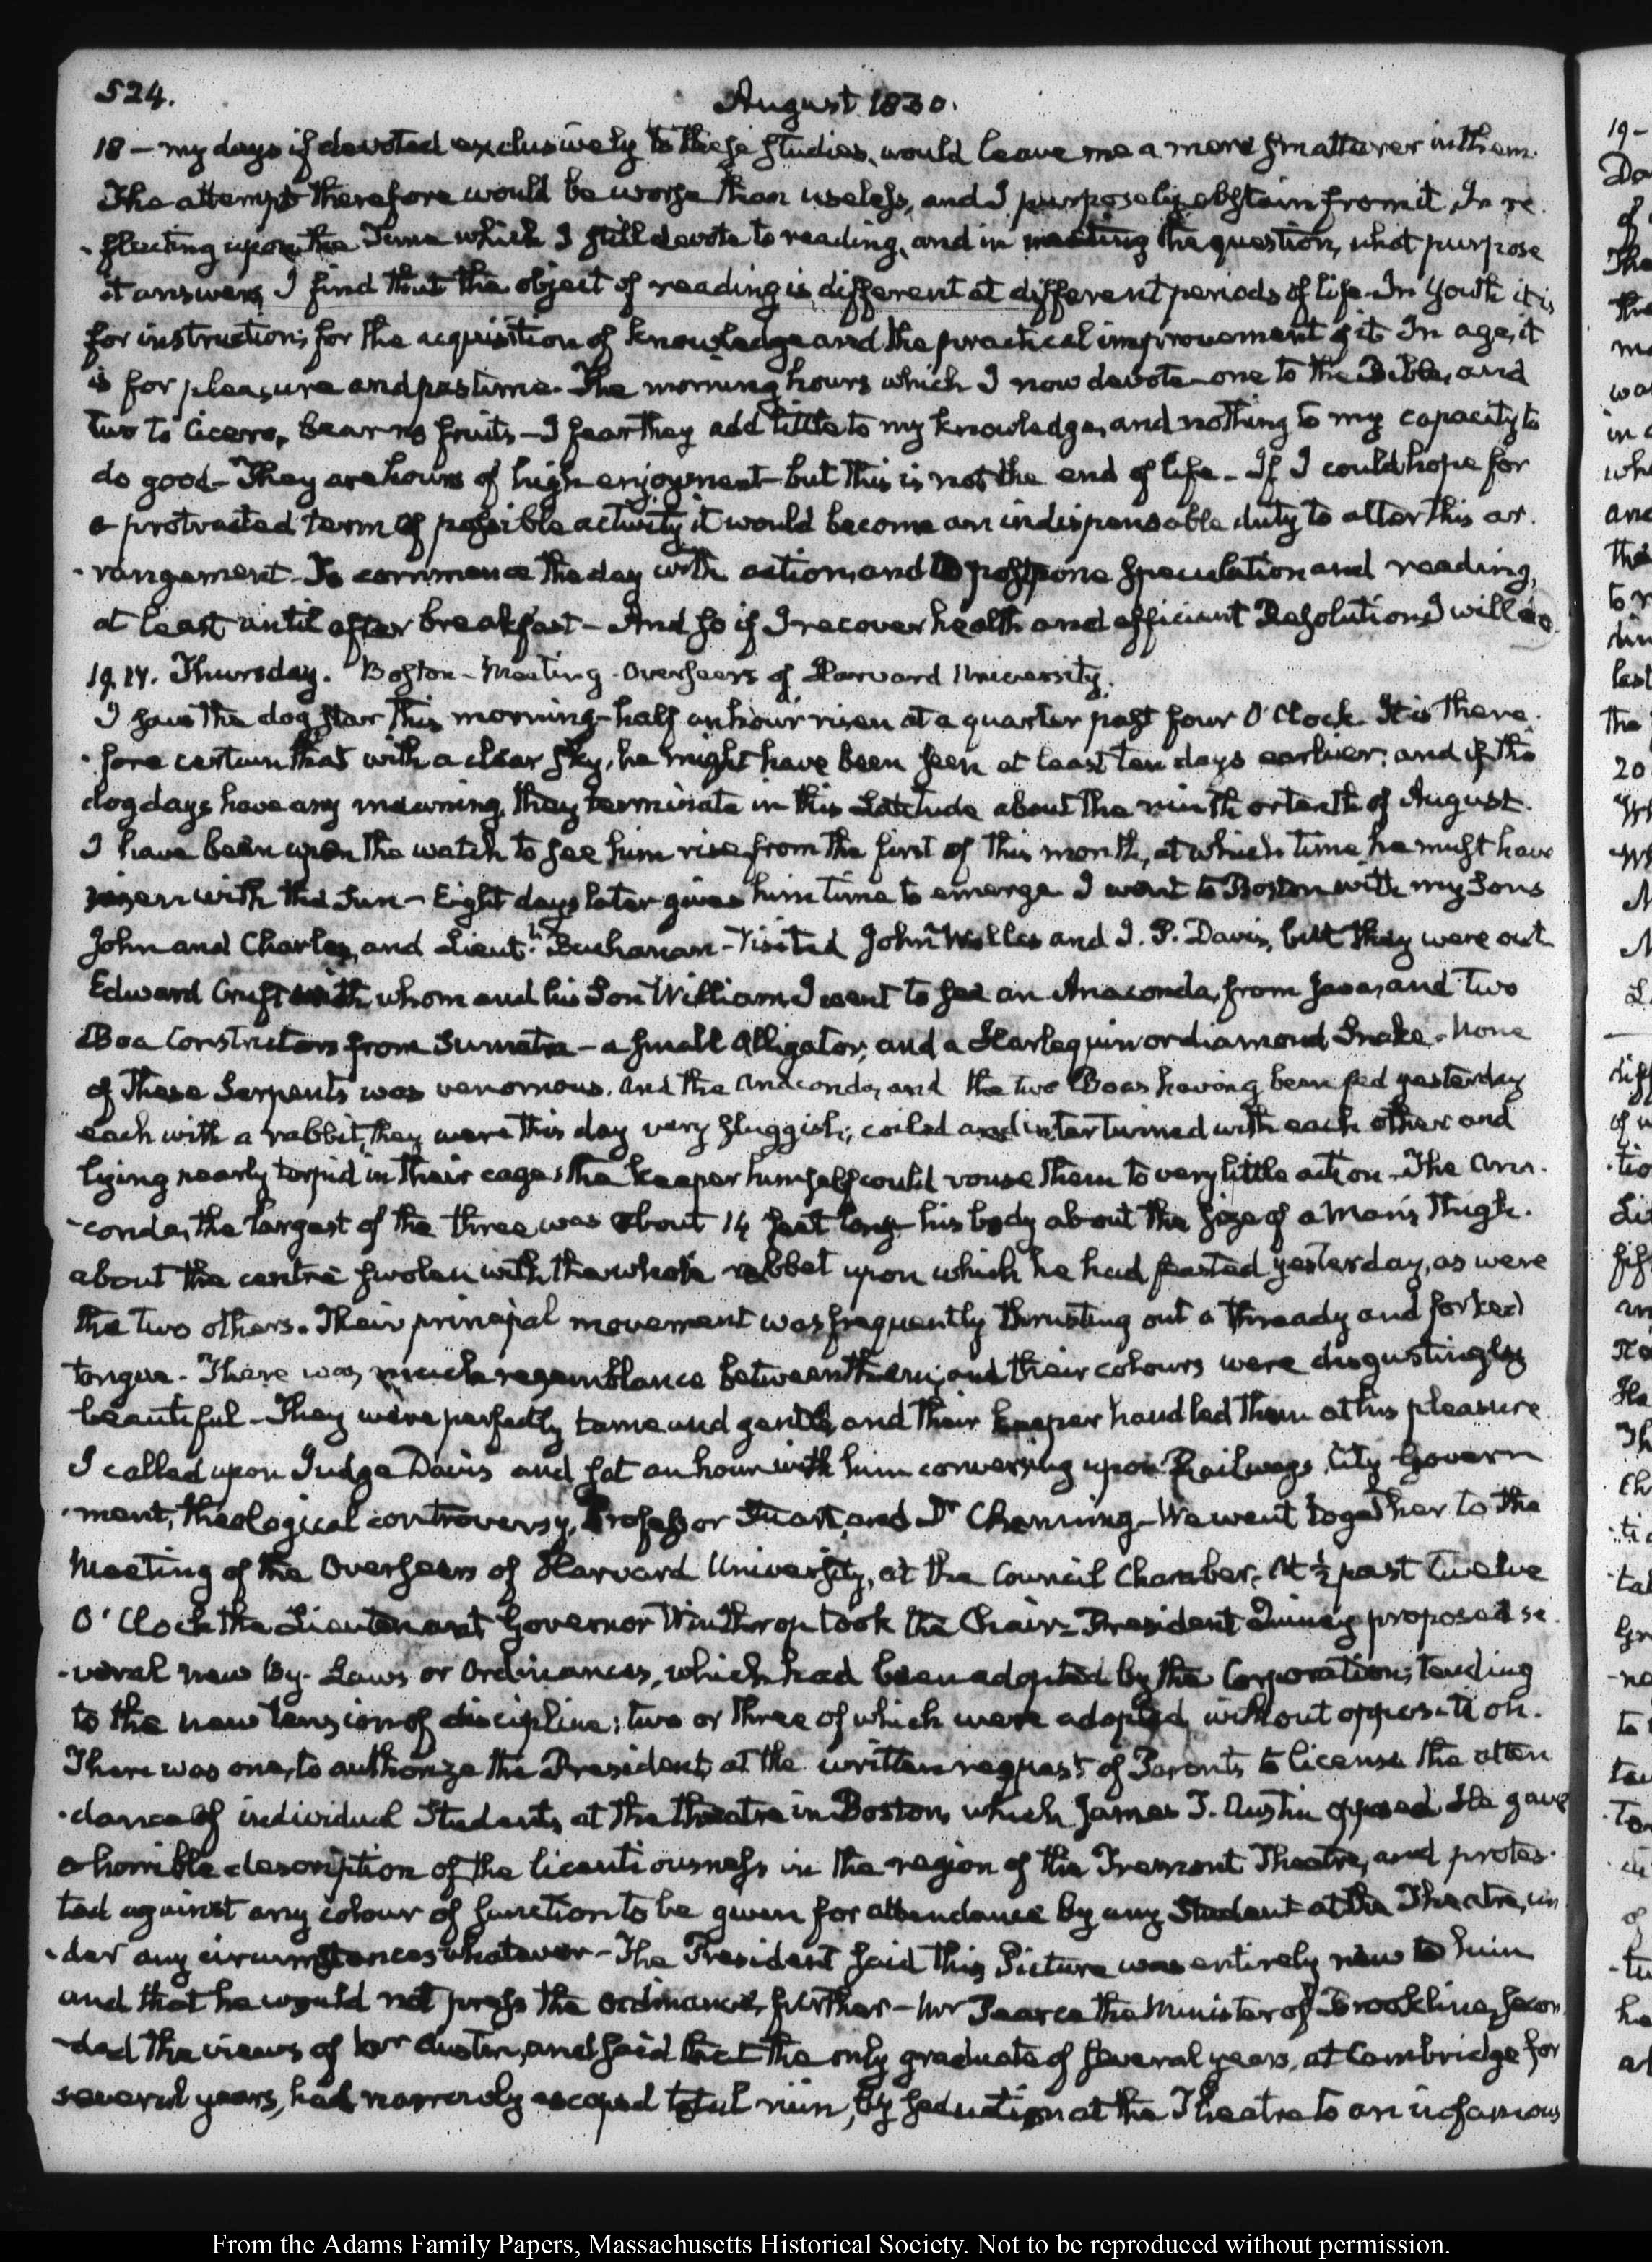 524.
August 1830.
18 — my days if devoted exclusively to these studies, would leave me a mere smatterer in them.
The attempt therefore would be worse than useless, and I purposely abstain from it. In re-
-flecting upon the Time which I still devote to reading, and in meeting the question, what purpose
it answers, I find that the object of reading is different at different periods of life. In Youth it is
for instruction; for the acquisition of knowledge and the practical improvement of it. In age, it
is for pleasure and pastime. The morning hours which I now devote one to the Bible, and
two to Cicero, bear no fruits — I fear they add little to my knowledge, and nothing to my capacity to
do good — They are hours of high enjoyment — but this is not the end of life — If I could hope for
a protracted term of possible activity it would become an indispensable duty to alter this ar-
-rangement — To commence the day with action, and to postpone speculation and reading,
at least until after breakfast — And so if I recover health and efficient Resolution, I will do
19. IV. Thursday. Boston — Meeting — Overseers of Harvard University.
I saw the dog star this morning — half an hour risen at a quarter past four O'Clock. It is there-
-fore certain that with a clear sky, he might have been seen at least ten days earlier; and if the
dog days have any meaning, they terminate in this Latitude about the ninth or tenth of August.
I have been upon the watch to see him rise from the first of this month, at which time he must have
risen with the Sun — Eight days later gives him time to emerge. I went to Boston with my Sons
John and Charles, and Lieut.t Buchanan — Visited John Welles and I. P. Davis, but they were out.
Edward Cruft with whom and his Son William, I went to see an Anaconda, from Java, and two
Boa Constrictors from Sumatra — a small Alligator, and a Harlequin or diamond Snake — None
of these Serpents was venomous. and the Anaconda, and the two Boas having been fed yesterday
each with a rabbit, they were this day very sluggish; coiled and intertwined with each other and
lying nearly torpid in their cage; the keeper himself could rouse them to very little action — The Ana-
-conda, the largest of the three was about 14 feet long — his body about the size of a Man's thigh.
about the centre swolen with the whole rabbet upon which he had feasted yesterday, as were
the two others. Their principal movement was frequently thrusting out a thready and forked
tongue. There was much resemblance between them; and their colours were disgustingly
beautiful — They were perfectly tame and gentle, and their keeper handled them at his pleasure.
I called upon Judge Davis and sat an hour with him conversing upon Railways, City Govern-
-ment, theological controversy, Professor Stuart, and Dr Channing — We went together to the
Meeting of the Overseers of Harvard University, at the Council Chamber. At ½ past twelve
O'Clock the Lieutenant Governor Winthrop took the Chair — President Quincy proposed se-
-veral new By-Laws or Ordinances, which had been adopted by the Corporation; tending
to the new tension of discipline; two or three of which were adopted without opposition.
There was one, to authorize the President, at the written request of Parents to license the atten-
-dance of individual Students, at the theatre in Boston, which James T. Austin opposed. He gave
a horrible description of the licentiousness in the region of the Tremont Theatre, and protes-
ted against any colour of sanction to be given for attendance by any Student at the Theatre, un-
-der any circumstances whatever — The President said this Picture was entirely new to him
and that he would not press the ordinance further — Mr Pearce the Minister of Brookline, secon-
-ded the views of Mr Austin, and said that the only graduate of several years, at Cambridge for
several years, had narrowly escaped total ruin, by seduction at the Theatre to an infamous
From the Adams Family Papers, Massachusetts Historical Society. Not to be reproduced without permission.